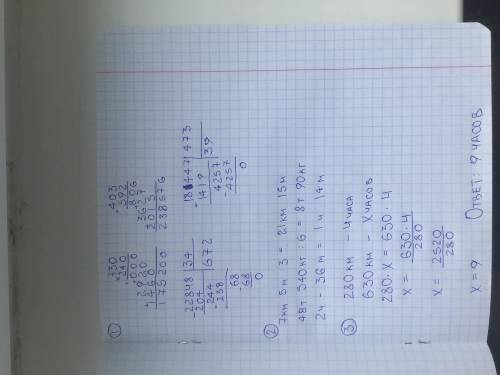 1
×730
240
000
+2920
1460
175200
×403
592
806
+3627
2015
238676
-22848 | 34
204 | 672
-244
238
-68
68
0
-18447 | 473
1419 | 39
-4257
4257
0
2
7км 5м 3 = 21км 15м
48т 540кг : 6 = 8т 90кг
2ч - 36м = 1ч 14м
3
280км - 4часа
630км - x часов
280·x = 630·4
x = 630·4
280
x = 2520
280
x = 9 Ответ: 9 часов